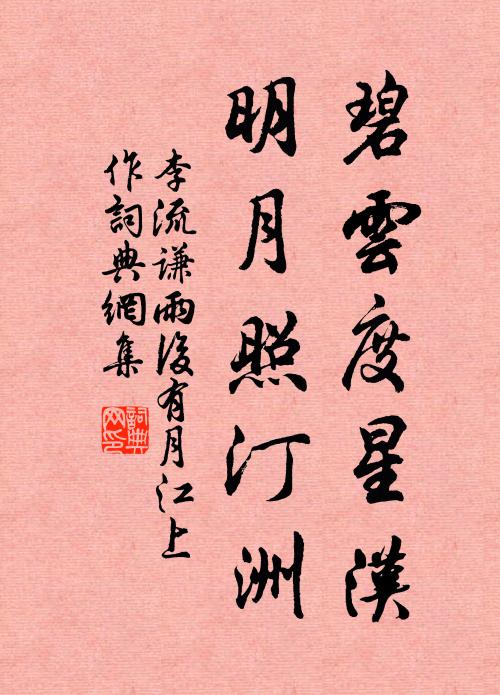 碧雲度星漢
明月照汀洲
李流謙雨後有月江上
作詞典網集
詞典
网印